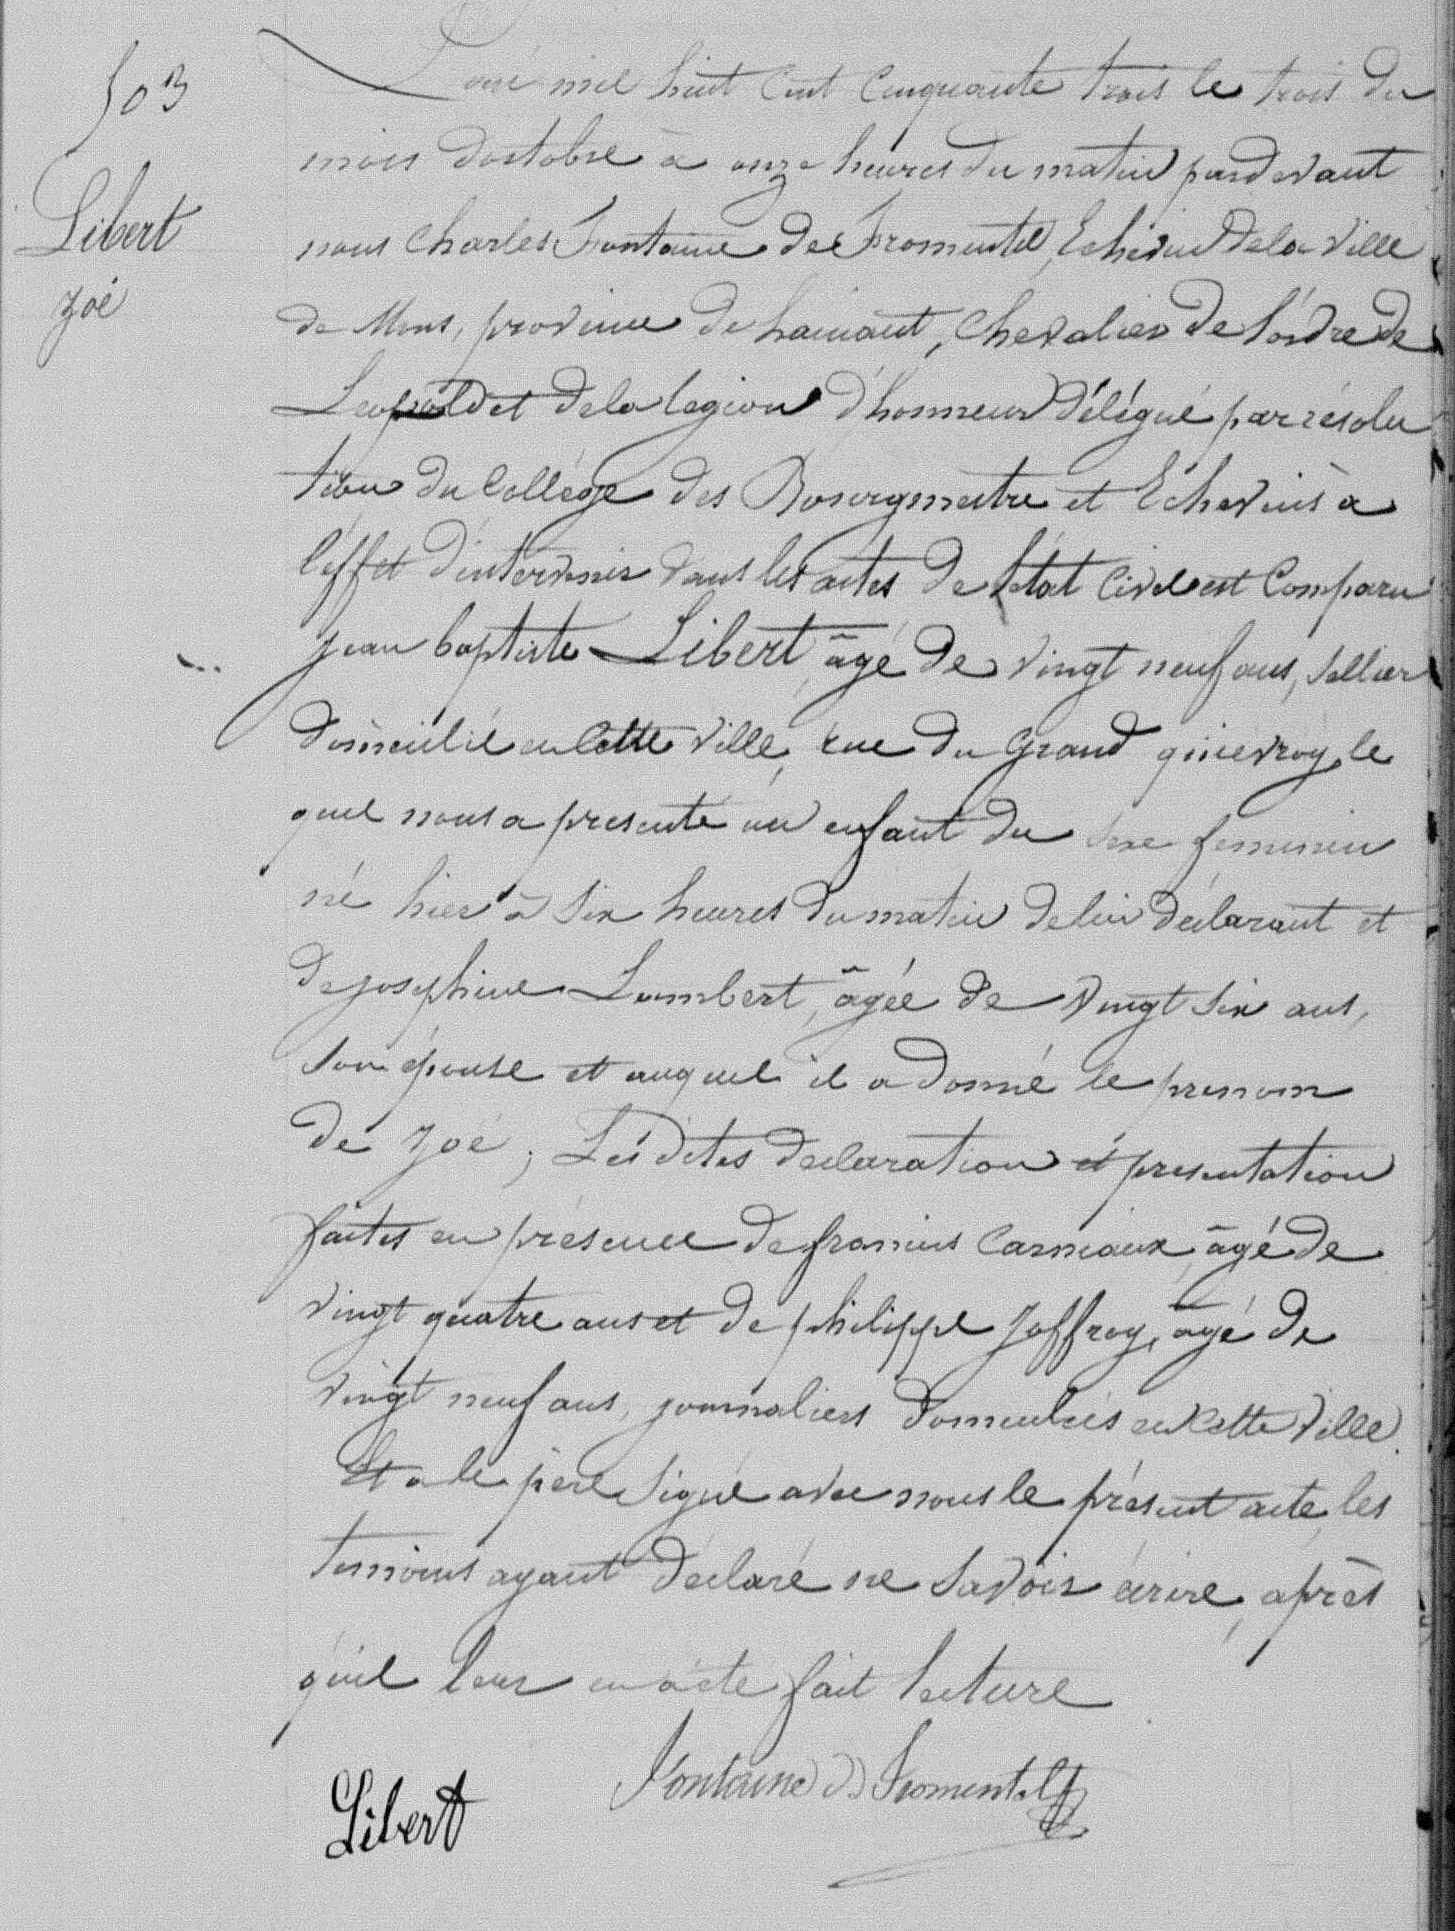 503
Libert
Zoé
L'an mil huit cent cinquante trois le trois du
mois d'octobre à onze heures du matin pardevant
nous Charles Fontaine de Fromentel, Echevin de la Ville
de Mons, province de hainaut, Chevalier de l'ordre de
Leopold et de la legion d'honneur délégué par résolu
tion du Collége des Bourgmestre et Echevins à
l'effet d'intervenir dans les actes de l'état Civil est Comparu
Jean baptiste Libert, âgé de vingt neuf ans, sellier
domicilié en Cette Ville, rue du Grand quievroy, le
quel nous a presenté un enfant du sexe feminin
né hier à six heures du matin de lui déclarant et
de josephine Lambert, âgée de vingt six ans,
son épouse et auquel il a donné le prenom
de Zoé, Lesdites declaration et presentation
faites en présence de francois Carneaux, âgé de
vingt quatre ans et de philippe Joffroy, âgé de
vingt neuf ans, journaliers domiciliés en Cette Ville.
Et a le père signé avec nous le présent acte, les
temoins ayant déclaré ne savoir écrire, après
qu'il leur en a été fait lecture
Libert
Fontaine de Fromentel